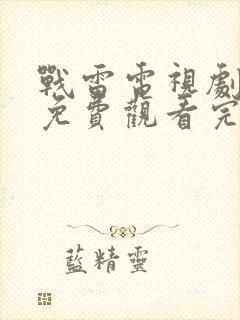 戰雷電視劇
免費觀看完
藍精靈